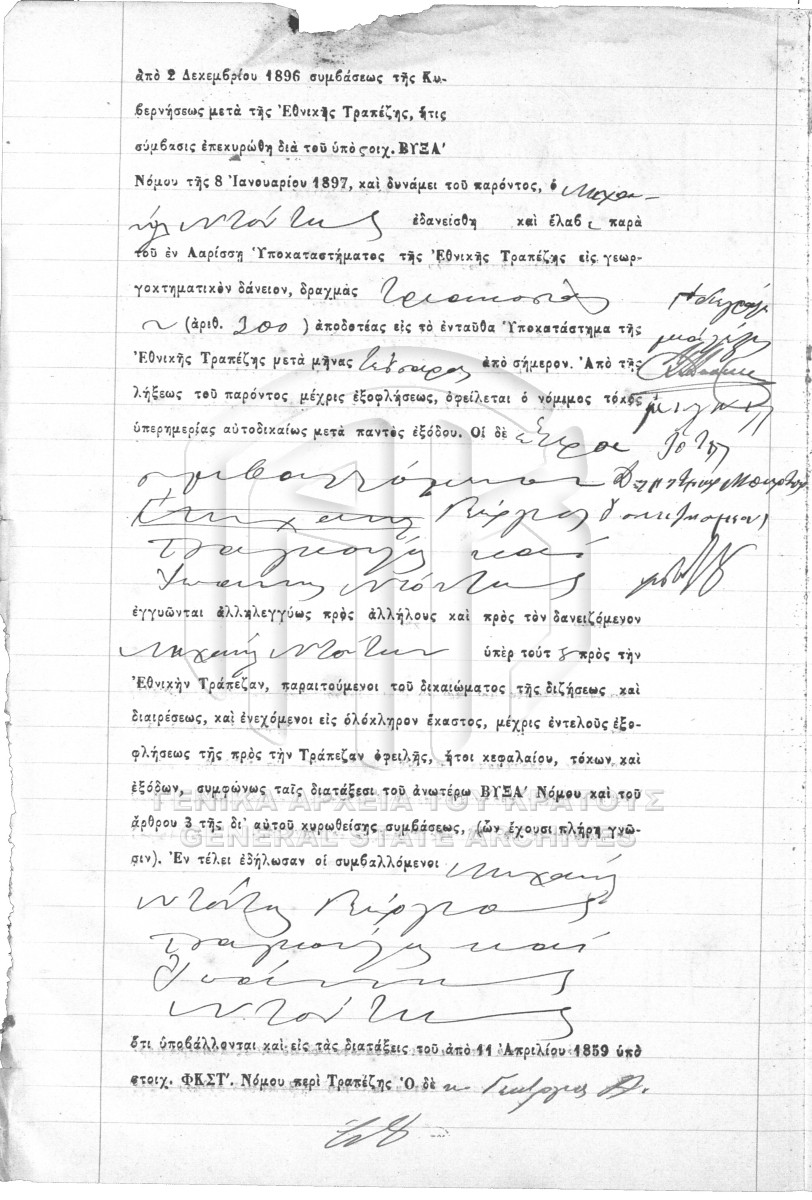 ἀπὸ 2 Δεκεμβρίου 1896 συμβάσεως τῆς Κυ-
βερνήσεως μετὰ τῆς Ἐθνικῆς Τραπέζης, ἥτις
σύμβασις ἐπεκυρώθη διὰ τοῦ ὑπὸ στοιχ. ΒΥΞΑ'
Νόμου τῆς 8 Ἰανουαρίου 1897, καὶ δυνάμει τοῦ παρόντος, ὁ Μιχα-
ὴλ Ντόντης ἐδανείσθη καὶ ἔλαβε παρὰ
τοῦ ἐν Λαρίσσῃ Ὑποκαταστήματος τῆς Ἐθνικῆς Τραπέζης εἰς γεωρ-
γοκτηματικὸν δάνειον, δραχμὰς τριακοσίας
(ἀριθ. 300) ἀποδοτέας εἰς τὸ ἐνταῦθα Ὑποκατάστημα τῆς
Ἐθνικῆς Τραπέζης μετὰ μῆνας τέσσαρας ἀπὸ σήμερον. Ἀπὸ τῆς
λήξεως τοῦ παρόντος μέχρις ἐξοφλήσεως, ὀφείλεται ὁ νόμιμος τόκος
ὑπερημερίας αὐτοδικαίως μετὰ παντὸς ἐξόδου. Οἱ δὲ ἕτεροι
συμβαλλόμενοι
Γεώργιος
καὶ
Ἰωάννης Ντόντης
ἐγγυῶνται ἀλληλεγγύως πρὸς ἀλλήλους καὶ πρὸς τὸν δανειζόμενον
Μιχαὴλ Ντόντην ὑπὲρ τούτου πρὸς τὴν
Ἐθνικὴν Τράπεζαν, παραιτούμενοι τοῦ δικαιώματος τῆς διζήσεως καὶ
διαιρέσεως, καὶ ἐνεχόμενοι εἰς ὁλόκληρον ἕκαστος, μέχρις ἐντελοῦς ἐξο-
φλήσεως τῆς πρὸς τὴν Τράπεζαν ὀφειλῆς, ἤτοι κεφαλαίου, τόκων καὶ
ἐξόδων, συμφώνως ταῖς διατάξεσι τοῦ ἀνωτέρω ΒΥΞΑ' Νόμου καὶ τοῦ
ΓΕΝΙΚΑ ΑΡΧΕΙΑ ΤΟΥ ΚΡΑΤΟΥΣ
ἄρθρου 3 τῆς δι' αὐτοῦ κυρωθείσης συμβάσεως, (ὧν ἔχουσι πλήρη γνῶ-
GENERAL STATE ARCHIVES
σιν). Ἐν τέλει ἐδήλωσαν οἱ συμβαλλόμενοι Μιχαὴλ
Ντόντης Γεώργιος
καὶ
Ἰωάννης
Ντόντης
ὅτι ὑποβάλλονται καὶ εἰς τὰς διατάξεις τοῦ ἀπὸ 11 Ἀπριλίου 1859 ὑπὸ
στοιχ. ΦΚΣΤ'. Νόμου περὶ Τραπέζης Ὁ δὲ κ. Γεώργιος